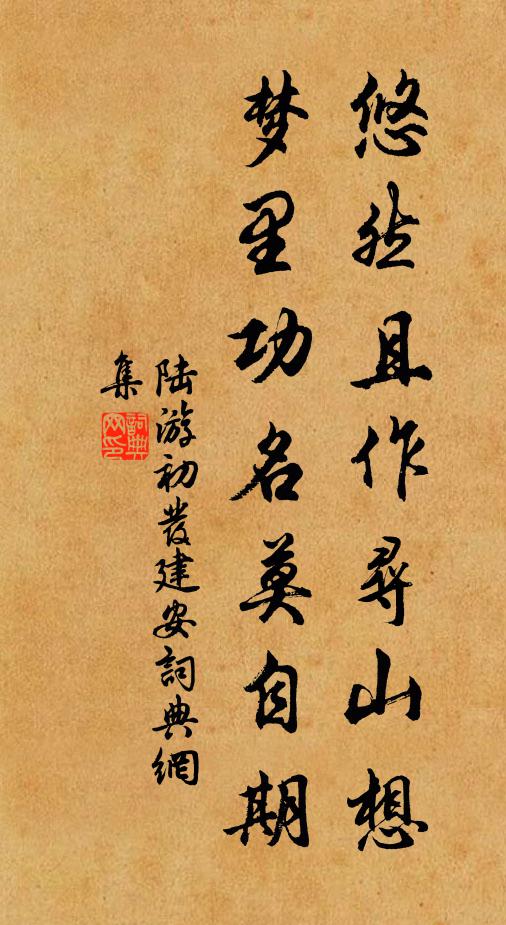 悠然且作尋山想
梦里功名莫自期
陆游初發建安詞典網
集
詞典网印